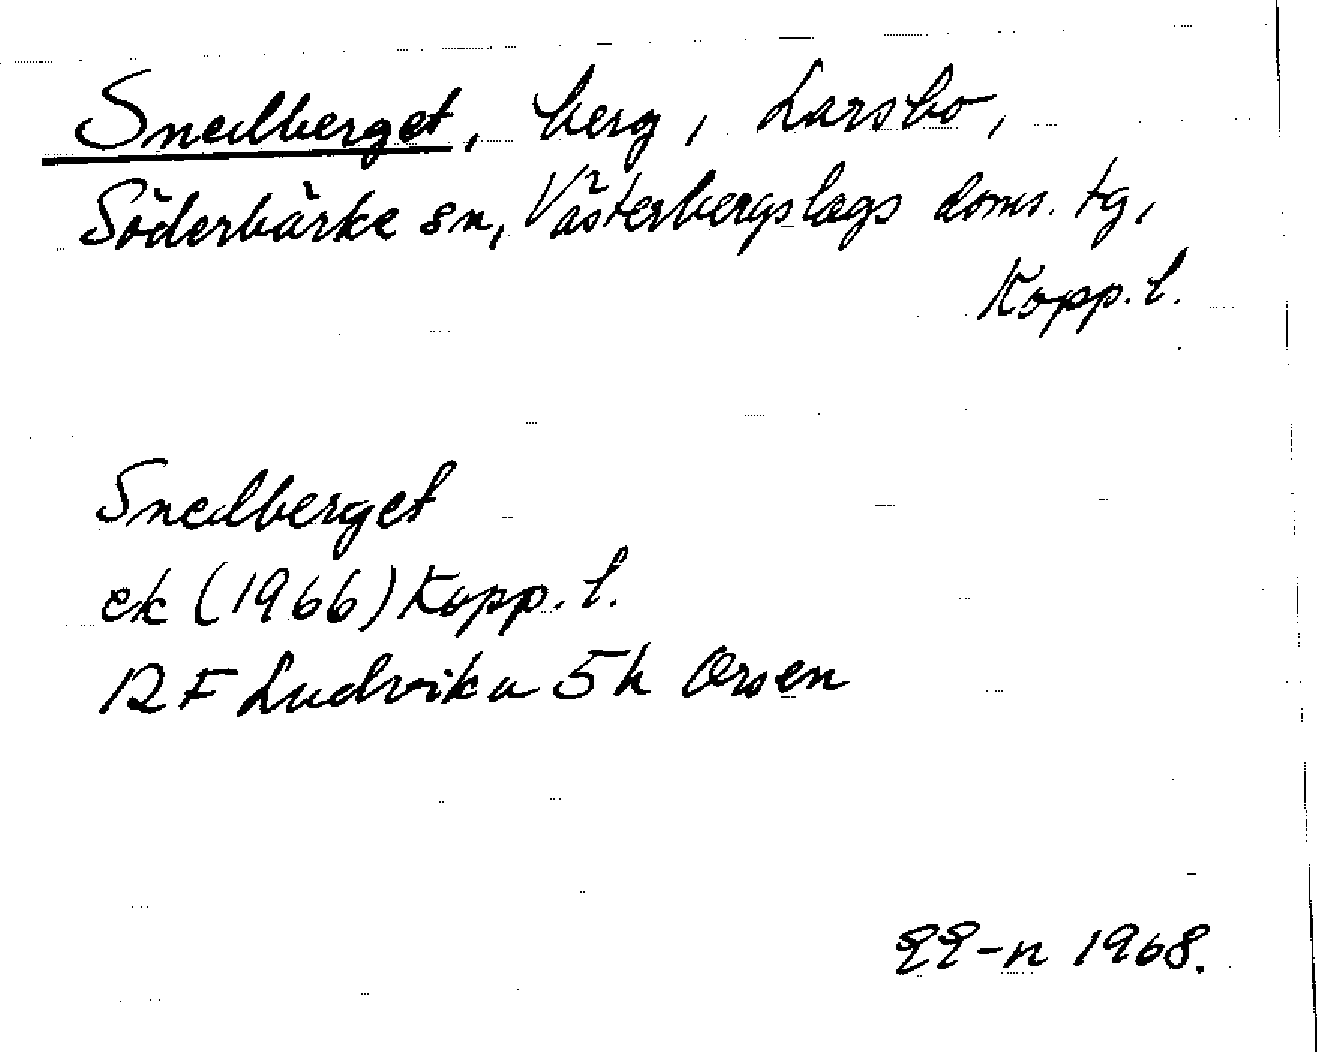 Snedberget, berg, Larsbo,
Söderbärke sn, Västerbergslags doms. tg,
Kopp. l.
Snedberget
ek (1966) Kopp. l.
12 F Ludvika 5h Orsen
1968.